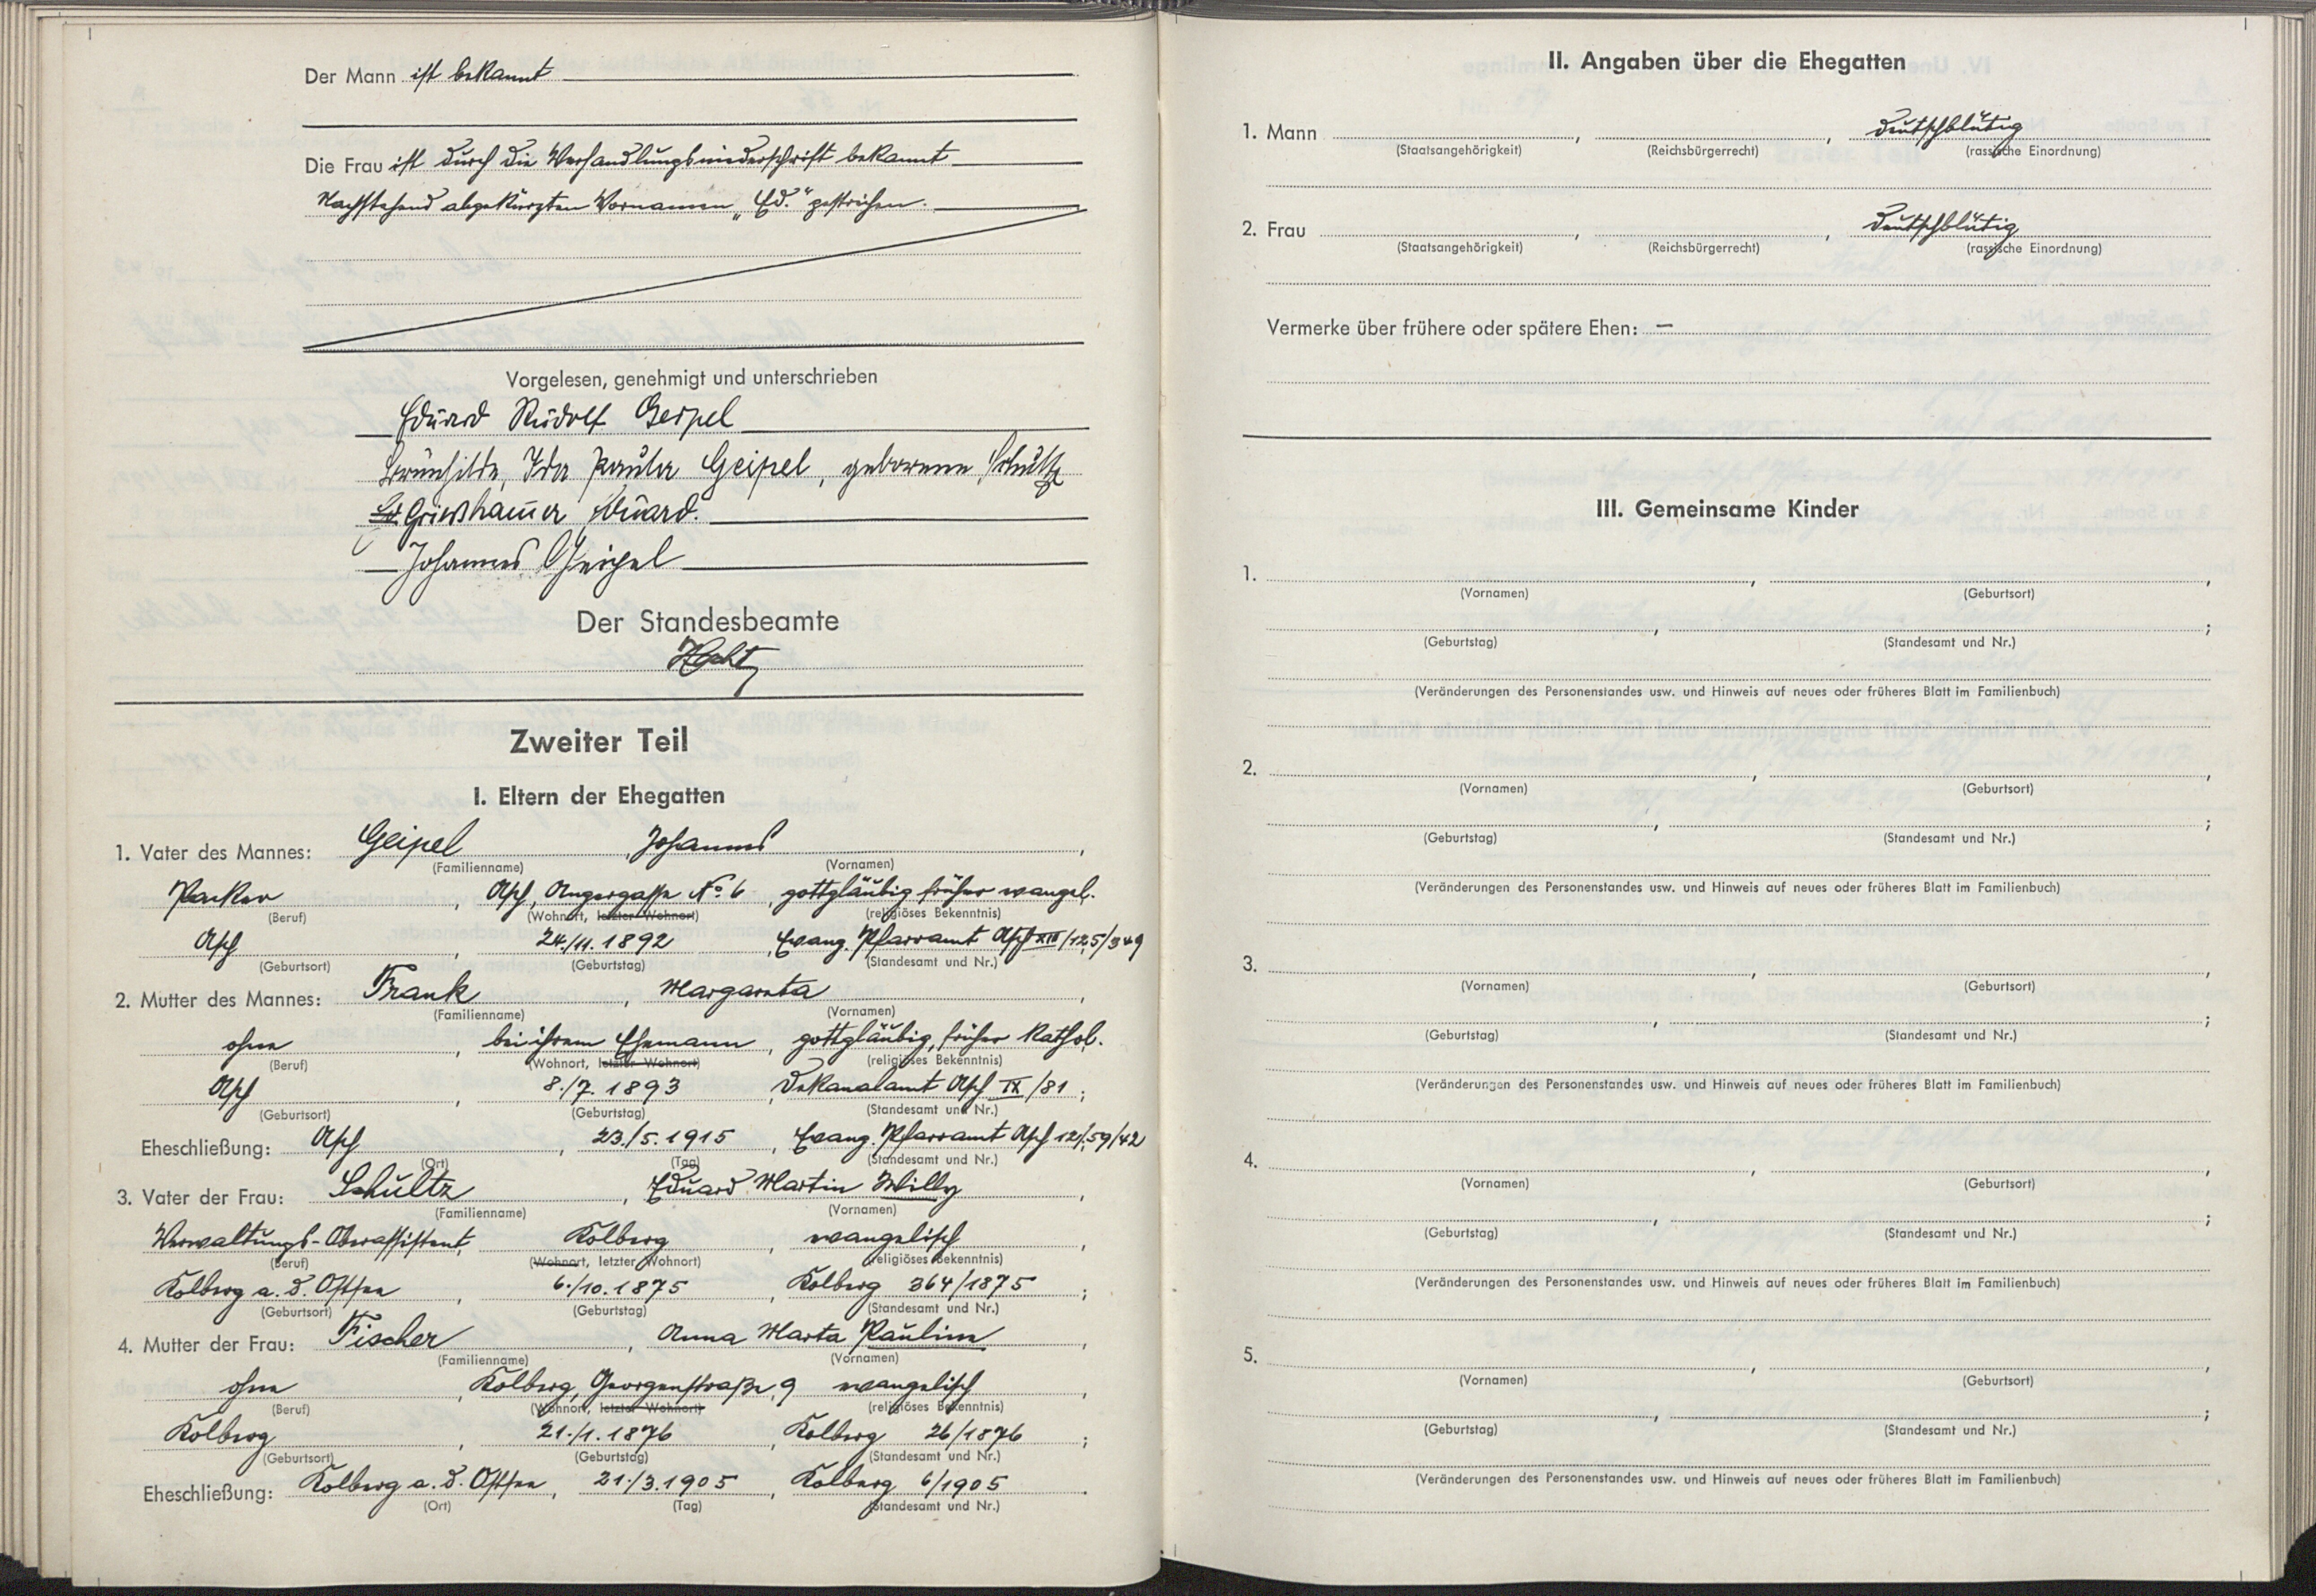 Der Mann ist bekannt
Die Frau ist durch die Verhandlungsniederschrift bekannt
Nachstehend abgekürzten Vornamen „Ed.“ gestrichen.
Vorgelesen, genehmigt und unterschrieben
Eduard Rudolf Geipel
Brünhilde, Ida Paula Geipel, geborene Schultz
Ed. Grieshammer Eduard.
Johannes Geipel
Der Standesbeamte
Zweiter Teil
I. Eltern der Ehegatten
1. Vater des Mannes: Geipel, Johannes,
(Familienname) (Vornamen)
Packer, Asch, Angergasse No. 6, gottgläubig früher evangel.
(Beruf) (Wohnort, letzter Wohnort) (religiöses Bekenntnis)
Asch, 24./11. 1892, Evang. Pfarramt Asch XIII/125/349
(Geburtsort) (Geburtstag) (Standesamt und Nr.)
2. Mutter des Mannes: Frank, Margareta,
(Familienname) (Vornamen)
ohne, bei ihrem Ehemann, gottgläubig, früher kathol.
(Beruf) (Wohnort, letzter Wohnort) (religiöses Bekenntnis)
Asch, 8./7. 1893, Dekanalamt Asch IX/81;
(Geburtsort) (Geburtstag) (Standesamt und Nr.)
Eheschließung: Asch, 23./5. 1915, Evang. Pfarramt Asch 12/59/42
(Ort) (Tag) (Standesamt und Nr.)
3. Vater der Frau: Schultz, Eduard Martin Willy,
(Familienname) (Vornamen)
Verwaltungs-Oberassistent, Kolberg, evangelisch,
(Beruf) (Wohnort, letzter Wohnort) (religiöses Bekenntnis)
Kolberg a. d. Ostsee, 6./10. 1875, Kolberg 364/1875;
(Geburtsort) (Geburtstag) (Standesamt und Nr.)
4. Mutter der Frau: Fischer, Anna Marta Pauline,
(Familienname) (Vornamen)
ohne, Kolberg, Georgenstraße 9, evangelisch,
(Beruf) (Wohnort, letzter Wohnort) (religiöses Bekenntnis)
Kolberg, 21./1. 1876, Kolberg 26/1876;
(Geburtsort) (Geburtstag) (Standesamt und Nr.)
Eheschließung: Kolberg a. d. Ostsee, 21./3. 1905, Kolberg 6/1905.
(Ort) (Tag) (Standesamt und Nr.)
II. Angaben über die Ehegatten
1. Mann , , deutschblütig
(Staatsangehörigkeit) (Reichsbürgerrecht) (rassische Einordnung)
2. Frau , , deutschblütig
(Staatsangehörigkeit) (Reichsbürgerrecht) (rassische Einordnung)
Vermerke über frühere oder spätere Ehen: –
III. Gemeinsame Kinder
1. , ,
(Vornamen) (Geburtsort)
, ;
(Geburtstag) (Standesamt und Nr.)
(Veränderungen des Personenstandes usw. und Hinweis auf neues oder früheres Blatt im Familienbuch)
2. , ,
(Vornamen) (Geburtsort)
, ;
(Geburtstag) (Standesamt und Nr.)
(Veränderungen des Personenstandes usw. und Hinweis auf neues oder früheres Blatt im Familienbuch)
3. , ,
(Vornamen) (Geburtsort)
, ;
(Geburtstag) (Standesamt und Nr.)
(Veränderungen des Personenstandes usw. und Hinweis auf neues oder früheres Blatt im Familienbuch)
4. , ,
(Vornamen) (Geburtsort)
, ;
(Geburtstag) (Standesamt und Nr.)
(Veränderungen des Personenstandes usw. und Hinweis auf neues oder früheres Blatt im Familienbuch)
5. , ,
(Vornamen) (Geburtsort)
, ;
(Geburtstag) (Standesamt und Nr.)
(Veränderungen des Personenstandes usw. und Hinweis auf neues oder früheres Blatt im Familienbuch)